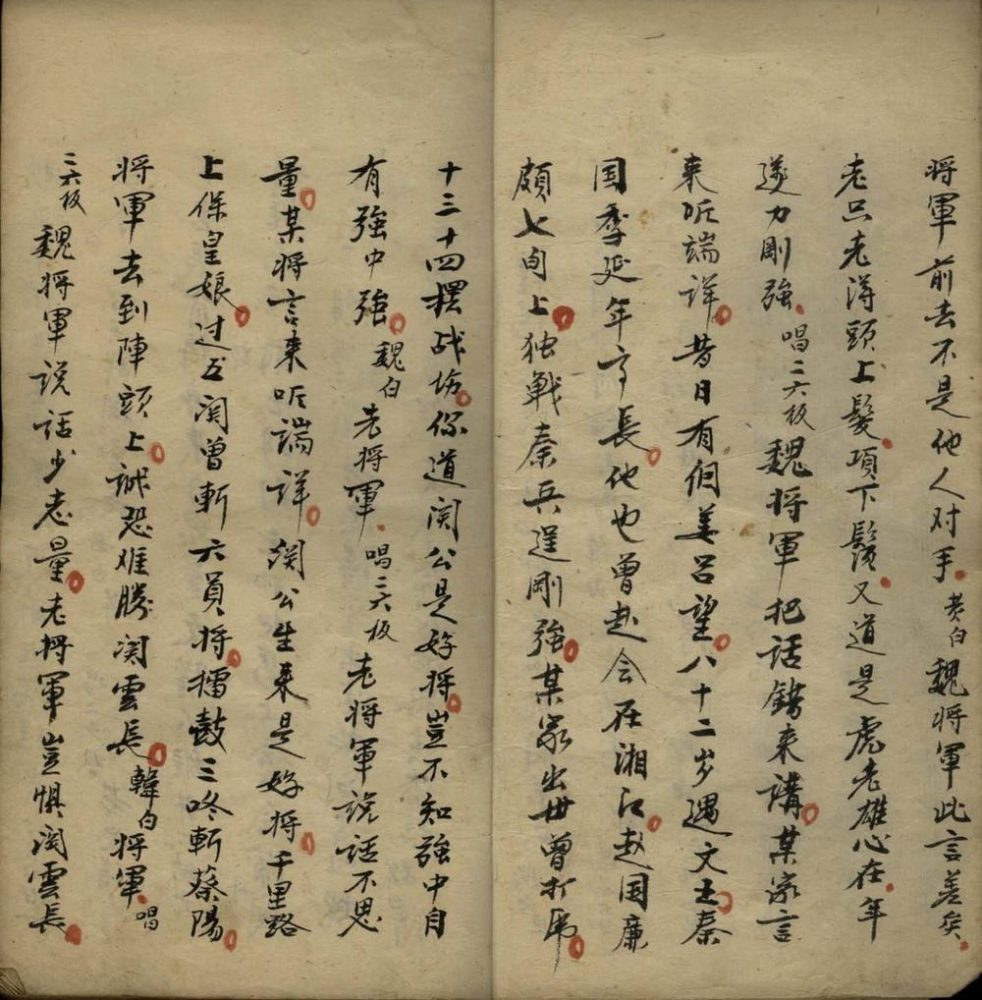 将軍前去不是他人对手黄白魏将軍此言差矣
老只老得頭上髮項下鬚又道是虎老雄心在年
邁力剛強唱二六板魏将軍把話錯来講某家言
来听端详昔日有個姜吕望八十二岁遇文王秦
国季延年亨長他也曾赴会在湘江赵国廉
頗七旬上独戦秦兵逞剛強某家出世曾打虎
十三十四摆战场你道関公是好将豈不知強中自
有強中強魏白老将軍唱二六板老将軍說話不思
量某将言来听端详関公生来是好将千里路
上保皇娘过五関曾斬六員将擂鼓三咚斬蔡陽
将軍去到陣頭上誠恐难勝関雲長韓白将軍唱
二六板魏将軍說話少志量老将軍豈惧関雲長